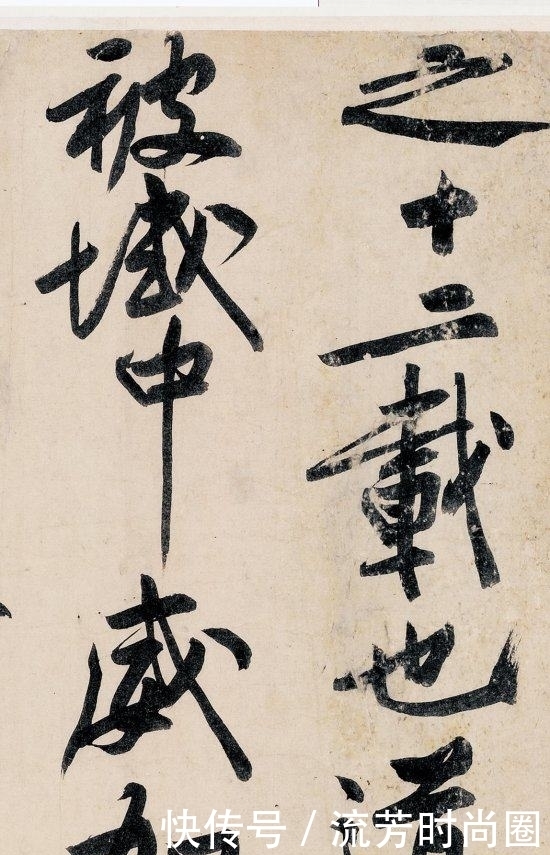 之十二載也
被域中威
快传号 / 流芳时尚圈